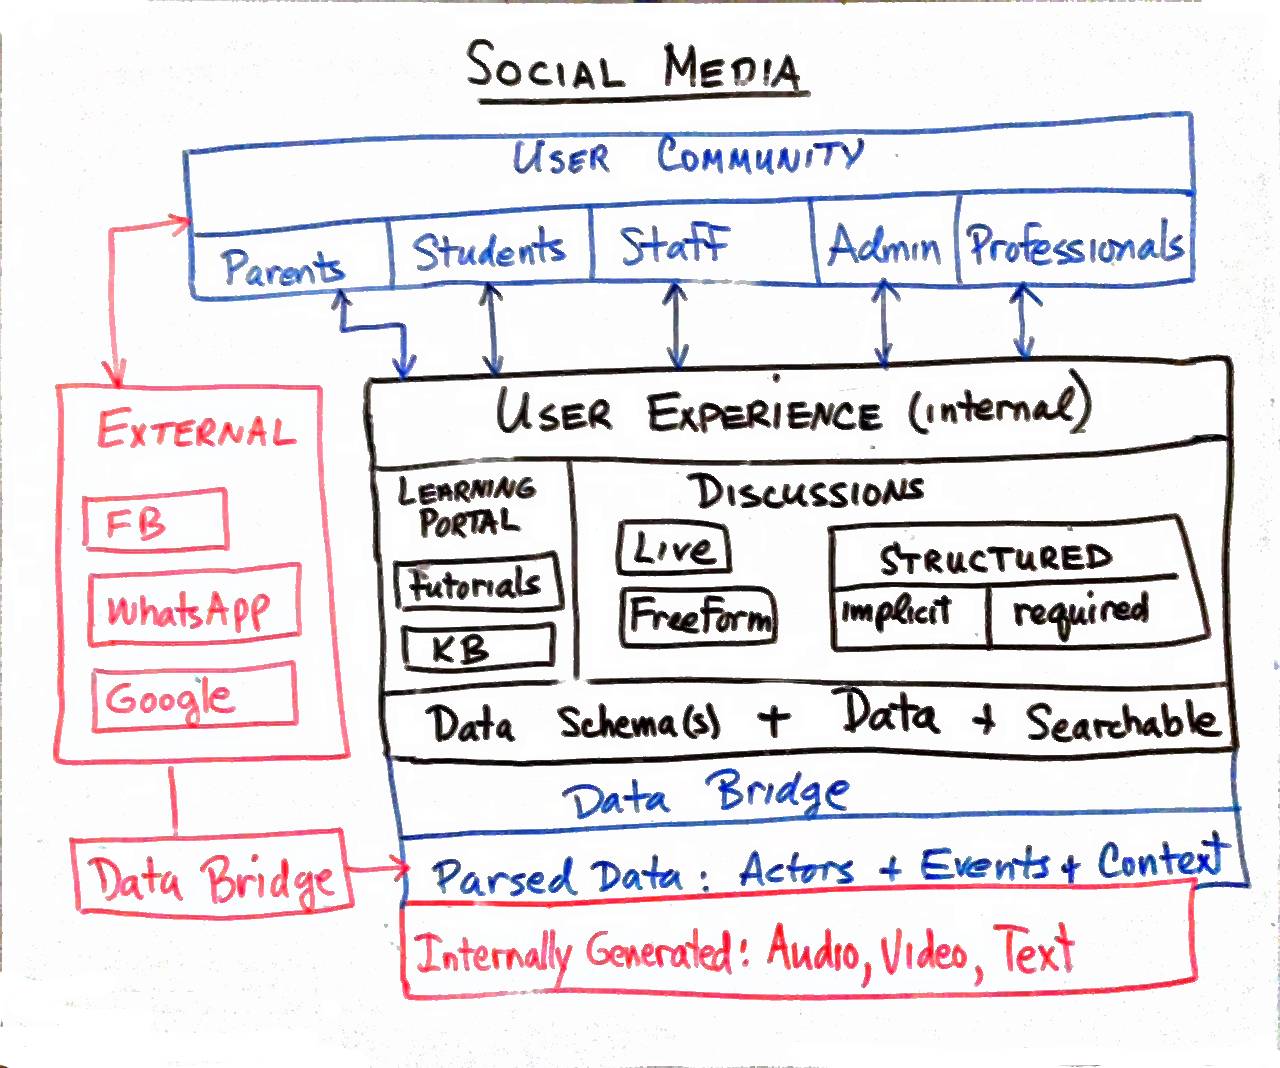 SOCIAL MEDIA
USER COMMUNITY
Parents
Students
Staff
Admin
Professionals
EXTERNAL
FB
WhatsApp
Google
Data Bridge
USER EXPERIENCE (internal)
LEARNING
PORTAL
tutorials
KB
DISCUSSIONS
Live
Freeform
STRUCTURED
implicit
required
Data Schema(s) + Data + Searchable
Data Bridge
Parsed Data: Actors + Events + Context
Internally Generated: Audio, Video, Text